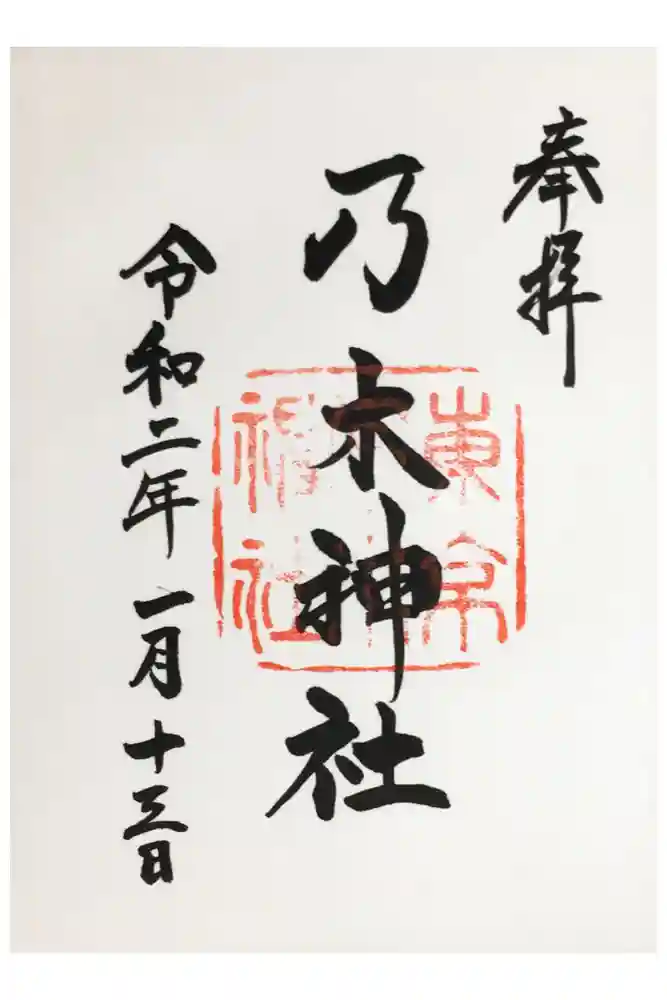 奉拝
乃木神社
東京
乃木
神社
令和二年一月十三日